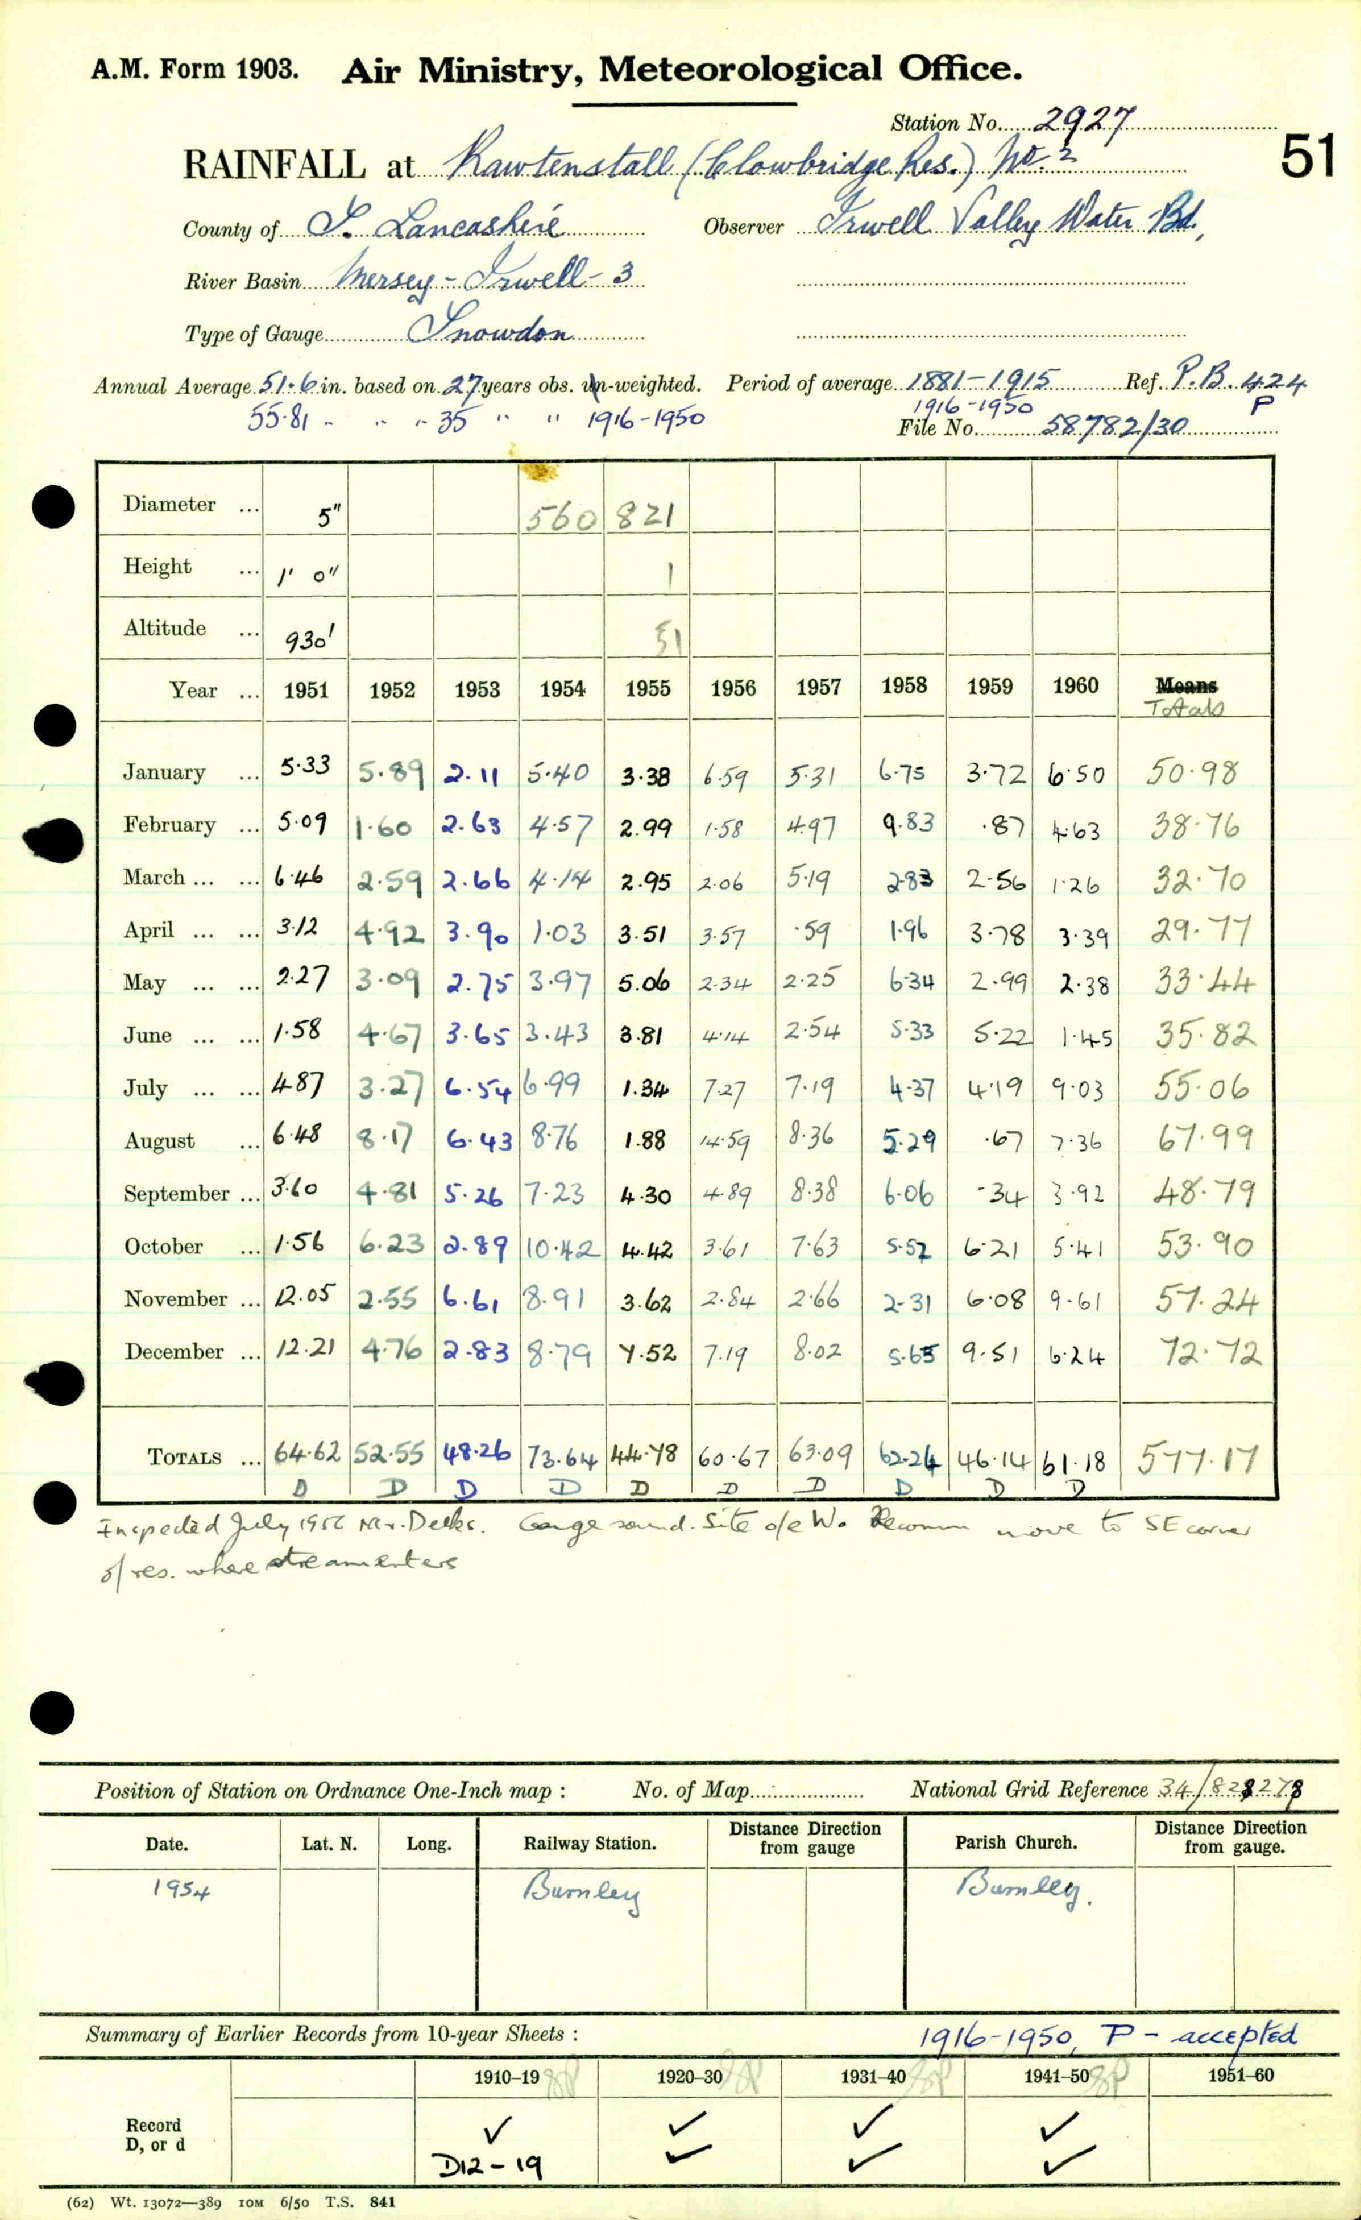 A.M. Form 1903. Air Ministry, Meteorological Office.
Station No. 2927
51
RAINFALL at Rawtenstall (Clowbridge Res.) No. 2
County of S. Lancashire Observer Irwell Valley Water Bd.,
River Basin Mersey - Irwell - 3
Type of Gauge Snowdon
Annual Average 51.6 in. based on 27 years obs. un-weighted. Period of average 1881-1915 Ref. P.B. 424
55.81 " " " 35 " " 1916-1950 1916-1950 P
File No. 58782/30
Diameter ... 5" 560 821
Height ... 1' 0" 1
Altitude ... 930' 51
Year ... 1951 1952 1953 1954 1955 1956 1957 1958 1959 1960 Means
Totals
January ... 5.33 5.89 2.11 5.40 3.38 6.59 5.31 6.75 3.72 6.50 50.98
February ... 5.09 1.60 2.63 4.57 2.99 1.58 4.97 9.83 .87 4.63 38.76
March ... ... 6.46 2.59 2.66 4.14 2.95 2.06 5.19 2.83 2.56 1.26 32.70
April ... ... 3.12 4.92 3.90 1.03 3.51 3.57 .59 1.96 3.78 3.39 29.77
May ... ... 2.27 3.09 2.75 3.97 5.06 2.34 2.25 6.34 2.99 2.38 33.44
June ... ... 1.58 4.67 3.65 3.43 3.81 4.14 2.54 5.33 5.22 1.45 35.82
July ... ... 4.87 3.27 6.54 6.99 1.34 7.27 7.19 4.37 4.19 9.03 55.06
August ... 6.48 8.17 6.43 8.76 1.88 14.59 8.36 5.29 .67 7.36 67.99
September ... 3.60 4.81 5.26 7.23 4.30 4.89 8.38 6.06 .34 3.92 48.79
October ... 1.56 6.23 2.89 10.42 4.42 3.61 7.63 5.52 6.21 5.41 53.90
November ... 12.05 2.55 6.61 8.91 3.62 2.84 2.66 2.31 6.08 9.61 57.24
December ... 12.21 4.76 2.83 8.79 7.52 7.19 8.02 5.65 9.51 6.24 72.72
TOTALS ... 64.62 52.55 48.26 73.64 44.78 60.67 63.09 62.24 46.14 61.18 577.17
D D D D D D D D D D
Inspected July 1956 Mr. Deeks. Gauge sound. Site o/e W. Recomm move to SE corner
of res. where stream enters
Position of Station on Ordnance One-Inch map : No. of Map National Grid Reference 34/828278
Date. Lat. N. Long. Railway Station. Distance from Direction gauge Parish Church. Distance from Direction gauge.
1954 Burnley Burnley.
Summary of Earlier Records from 10-year Sheets : 1916-1950, P - accepted
1910–19 1920–30 1931–40 1941–50 1951–60
Record ✓ ✓ ✓ ✓
D, or d D12-19 ✓ ✓ ✓
(62) Wt. 13072—389 10M 6/50 T.S. 841